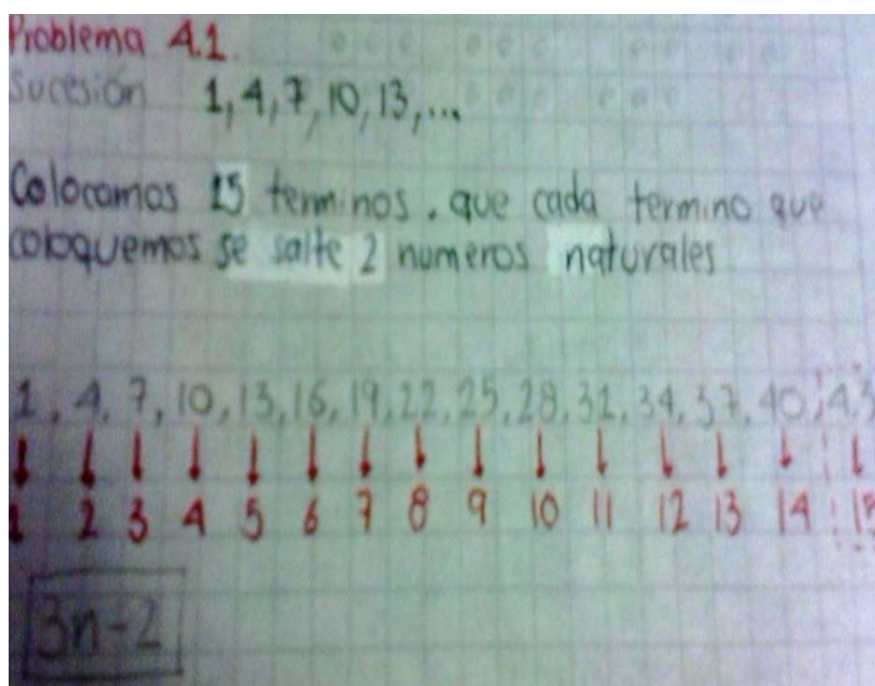 Problema 4.1.
Sucesión 1, 4, 7, 10, 13, ...
Colocamos 15 terminos. que cada termino que
coloquemos se salte 2 numeros naturales
1, 4, 7, 10, 13, 16, 19, 22, 25, 28, 31, 34, 37, 40, 43
1 2 3 4 5 6 7 8 9 10 11 12 13 14 15
3n-2